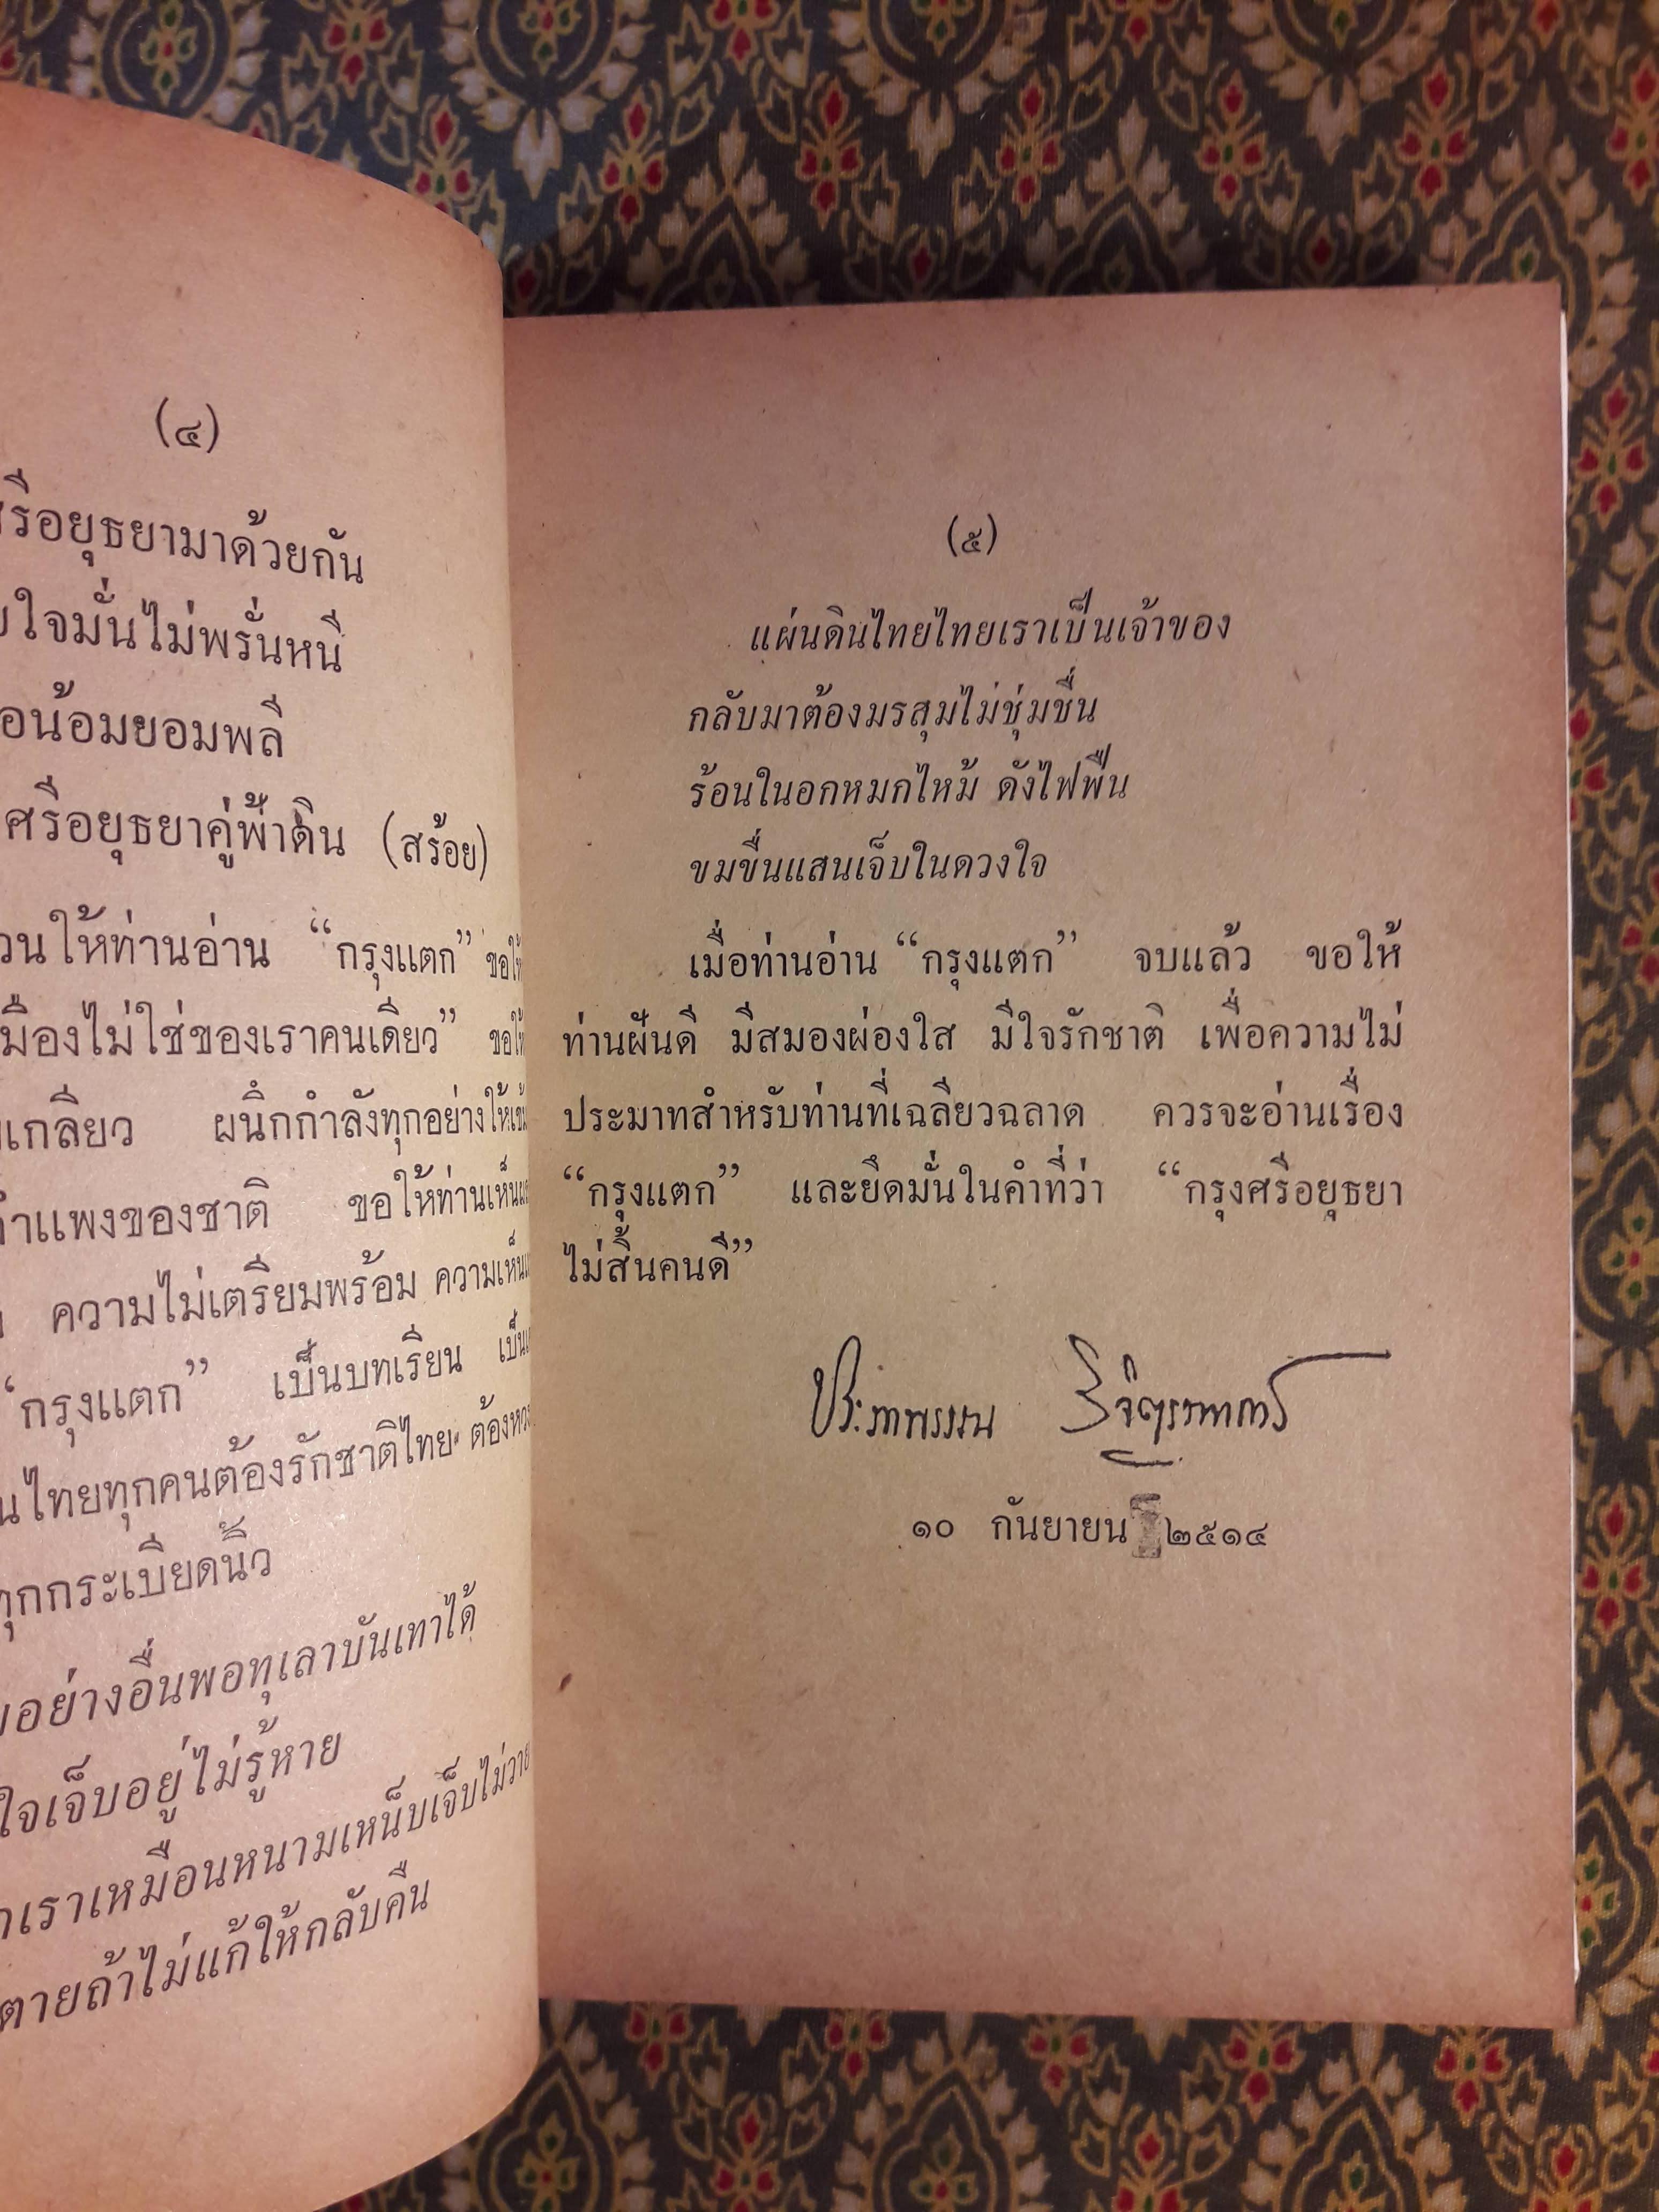 (๔)
ศรีอยุธยามาด้วยกัน
ใจมั่นไม่พรั่นหนี
น้อมยอมพลี
ศรีอยุธยาคู่ฟ้าดิน (สร้อย)
ให้ท่านอ่าน “กรุงแตก” ขอให้
เมืองไม่ใช่ของเราคนเดียว” ขอให้
เกลียว ผนึกกำลังทุกอย่างให้
กำแพงของชาติ ขอให้ท่านเห็น
ความไม่เตรียมพร้อม ความเห็น
“กรุงแตก” เป็นบทเรียน
ไทยทุกคนต้องรักชาติไทย ต้อง
ทุกกระเบียดนิ้ว
อย่างอื่นพอทุเลาบันเทาได้
ใจเจ็บอยู่ไม่รู้หาย
เราเหมือนหนามเหน็บเจ็บไม่วาย
ตายถ้าไม่แก้ให้กลับคืน
(๕)
แผ่นดินไทยไทยเราเป็นเจ้าของ
กลับมาต้องมรสุมไม่ชุ่มชื่น
ร้อนในอกหมกไหม้ ดังไฟฟืน
ขมขื่นแสนเจ็บในดวงใจ
เมื่อท่านอ่าน “กรุงแตก” จบแล้ว ขอให้
ท่านฝันดี มีสมองผ่องใส มีใจรักชาติ เพื่อความไม่
ประมาทสำหรับท่านที่เฉลียวฉลาด ควรจะอ่านเรื่อง
“กรุงแตก” และยึดมั่นในคำที่ว่า “กรุงศรีอยุธยา
ไม่สิ้นคนดี”
ประภาพรรณ วิจิตรวาทการ
๑๐ กันยายน ๒๕๑๔